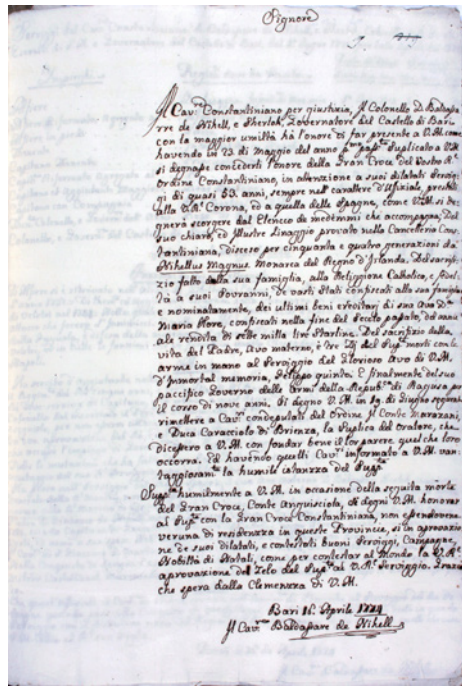 Signore
Il Cav.re Constantiniano per giustizia, Il Colonello D. Baldassa
rre de Nihell, e Sherlok, Governatore del Castello di Bari
con la maggior umiltà hà l'onore di far presente a V.M. come
havendo in 23. di Maggio del anno pass.to suplicato a V.M.
si degnasse concederli l'onore della Gran Croce del Vostro R.l
Ordine Constantiniano, in attenzione a suoi dilatati servigi
gi di quasi 53. anni, sempre nell' carattere d'Ufiziale, prestati
alla V.R. Corona, ed a quella delle Spagne, come V.M. si de
gnerà scorgere dal Elencco de medemmi che accompagna, Del
suo chiaro, ed Illustre Linaggio provato nella Cancellaria Cons
tantiniana, disceso per cinquanta e quatro generazioni da
Nihellus Magnus Monarca del Regno d'Irlanda. Del sacrifi
zio fatto dalla sua famiglia, alla Religgione Catholica, e fidel
tà a suoi Sovranni, de vasti Stati confiscati alla sua famiglia
e nominatamente, dei ultimi beni ereditarj di sua Ava D.a
Maria Hore, confiscati nella fine del Secolo passato, del annu
ale rendita di sette milla lire Starline. Del sacrifizio della
vita del Padre, Avo materno, e tre Zij del Sup.te morti con le
arme in mano al Serviggio del Glorioso Avo di V.M.
d'Immortal memoria, Felippo quinto. E finalmente del suo
paccifico Governo delle Armi della Repub.ca di Ragusa per
il corso di nove anni. Si degnò V.M. in 19. di Giugno
rimettere a Cav.ri condeputati del Ordine Il Conte Marazani,
e Duca Caracciolo di Brienza, la Suplica del Oratore, che
Dicessero a V.M. con fondar bene il lor parere quel che loro
occorra. Ed havendo quelli Cav.ri informato a V.M. van
taggiosam.te la humile istanza del Sup.te
Sup.ca humilmente a V.M. in occasione della seguita morte
del Gran Croce, Conte Anguisciola, si degni V.M. honorar
al Sup.te con la Gran Croce Constantiniana, non essendovene
veruna di residenza in queste Provincie, si in aprovazio
ne de suoi dilatati, e contestati buoni Serviggi, Campagne,
Nobiltà di Natali, come per contestar al Mondo la V.R.
aprovazione del Zelo del Sup.te al V.R. Serviggio. Grazia
che spera dalla Clemenza di V.M.
Bari 16. Aprile 1774
Il Cav.re Baldassare de Nihell